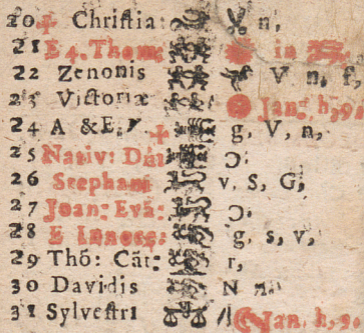 20 Chriſtia: n,
21 E4. Thom: in
22 Zenonis V n, f,
23 Victoriæ Jan: h, 9,
24 A &E, g, V, n,
25 Nativ: Dni
26 Stephani v, S, G,
27 Joan: Evã:
28 E Innoc: g, s, v,
29 Thõ: Cãt: r,
30 Davidis N
31 Sylveſtri Jan, h,